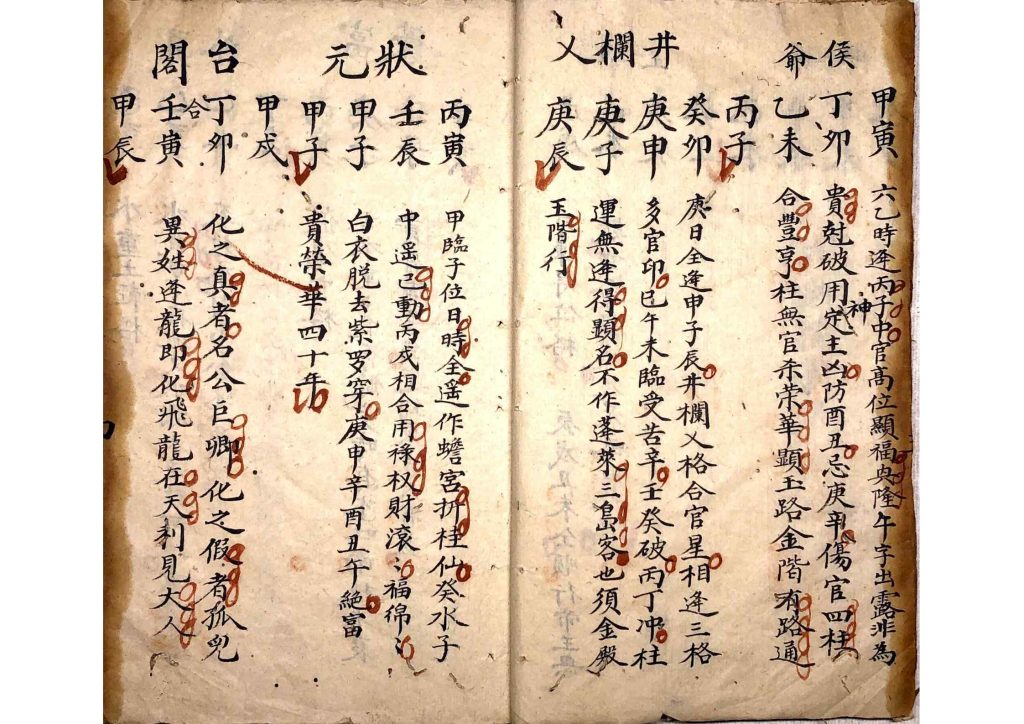 侯爺
甲寅 六乙時逢丙子中官高位顯福與隆午字出露非為
丁卯 貴尅破用神定主凶防酉丑忌庚辛傷官四柱
乙未 合豐亨柱無官杀荣華顯玉路金階有路通
丙子
井欄乂
癸卯 庚日全逢申子辰井欄乂格合官星相逢三格
庚申 多官印巳午未臨受苦辛壬癸破丙丁冲柱
庚子 運無逢得顯名不作蓬萊三島客也須金殿
庚辰 玉階行
狀元
丙寅 甲臨子位日時全遥作蟾宮折桂仙癸水子
壬辰 中遥已動丙戍相合用祿权財滾〻福绵〻
甲子 白衣脫去紫罗穿庚申辛酉丑午絕富
甲子 貴荣華四十年
甲戍
台閣
丁卯 化之真者名公巨卿化之假者孤兒
合
壬寅 異姓逢龍即化飛龍在天利見大人
甲辰